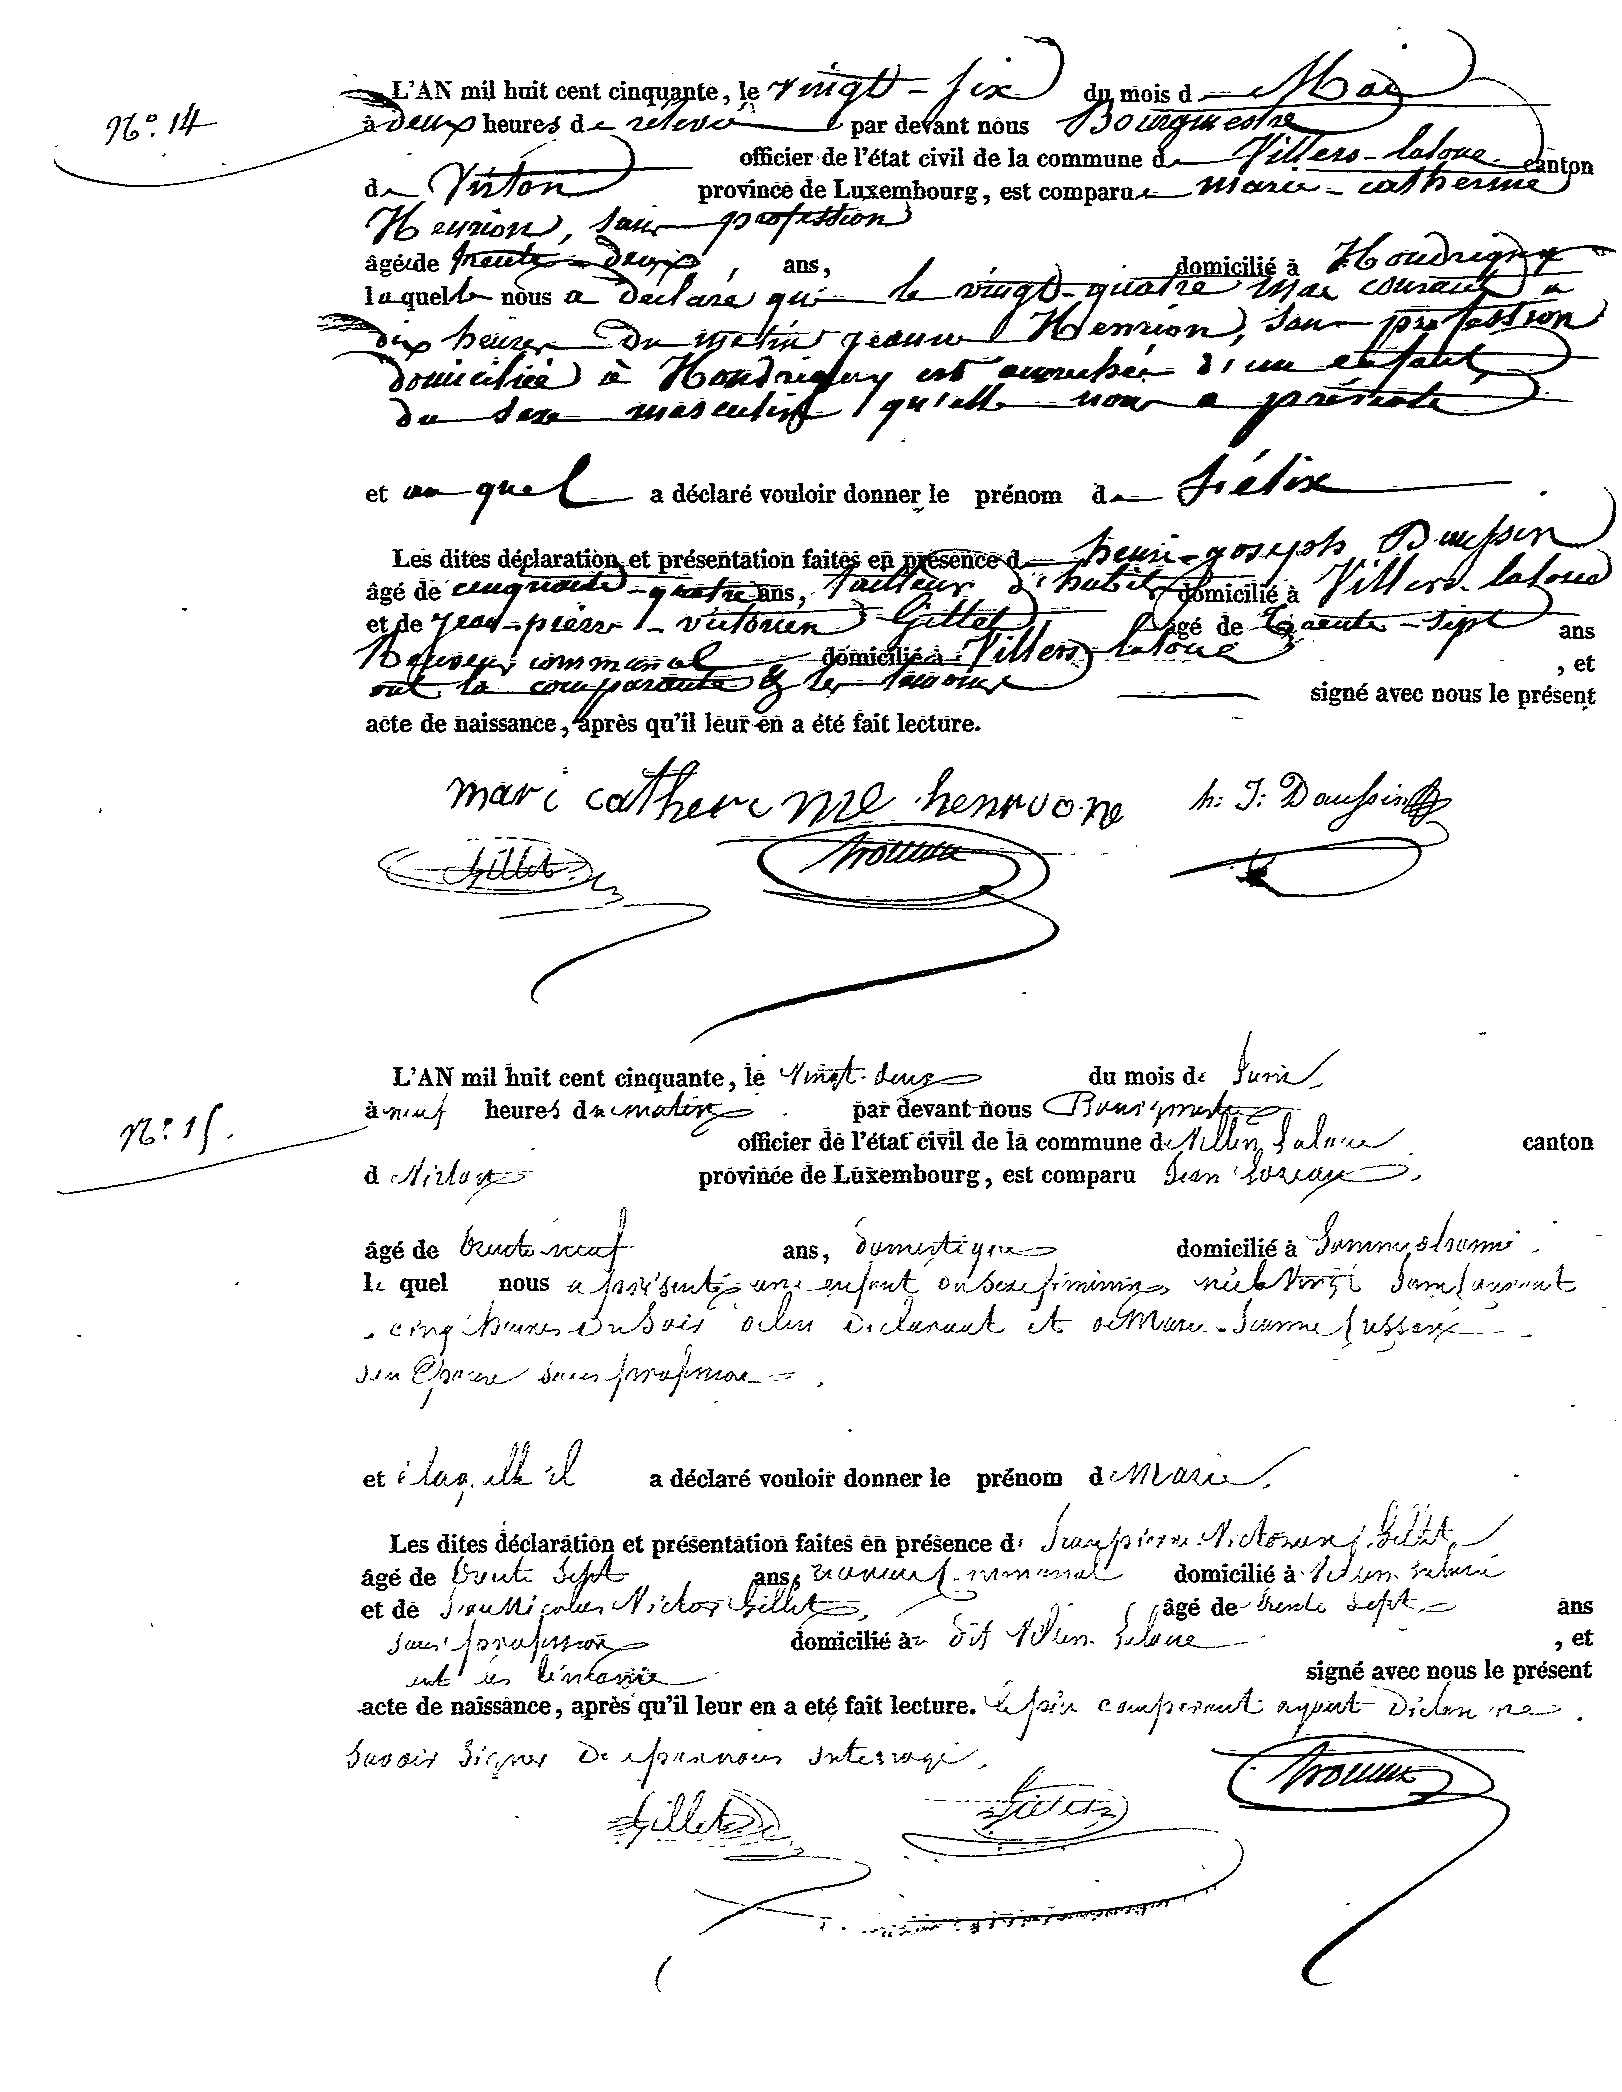 N° 14
L'AN mil huit cent cinquante, le vingt-six du mois de Mai
à deux heures de relevée par devant nous Bourgmestre
officier de l'état civil de la commune de Villers-laloue canton
de Virton province de Luxembourg, est comparue marie-catherine
Henrion, sans profession
âgée de trente-deux, ans, domicilié à Houdrigny
laquelle nous a déclaré que le vingt-quatre mai courant à
dix heures du matin jeanne Henrion, sans profession
domiciliée à Houdrigny est accouchée d'un enfant
du sexe masculin qu'elle nous a présenté
et auquel a déclaré vouloir donner le prénom de félix
Les dites déclaration et présentation faites en présence de henri-joseph Daussin
âgé de cinquante-quatre ans, tailleur d'habits domicilié à Villers-laloue
et de jean-pierre-victorien Gillet âgé de trente-sept ans
Receveur communal domicilié à Villers-laloue , et
ont la comparante & les témoins signé avec nous le présent
acte de naissance, après qu'il leur en a été fait lecture.
mari catherine henrione h: J: Daussin
Gillet
N° 15.
L'AN mil huit cent cinquante, le vingt-deux du mois de Juin
à neuf heures du matin par devant nous Bourgmestre
officier de l'état civil de la commune de Villers Laloue canton
d Virton province de Luxembourg, est comparu Jean Loreau
âgé de trente neuf ans, domestique domicilié à Sommethonne
le quel nous a présenté une enfant du sexe féminin, née le vingt Juin courant
cinq heures du soir de lui déclarant et de Marie-Jeanne
son Epouse sans profession
et à laquelle il a déclaré vouloir donner le prénom de Marie
Les dites déclaration et présentation faites en présence de Jean pierre Victorien Gillet
âgé de trente sept ans, receveur communal domicilié à Villers Laloue
et de Jean Nicolas Victor Gillet âgé de trente sept ans
sans profession domicilié à dit Villers Laloue , et
ont les témoins signé avec nous le présent
acte de naissance, après qu'il leur en a eté fait lecture. le père comparant ayant déclaré ne
savoir signer De ce par nous interrogé.
Gillet